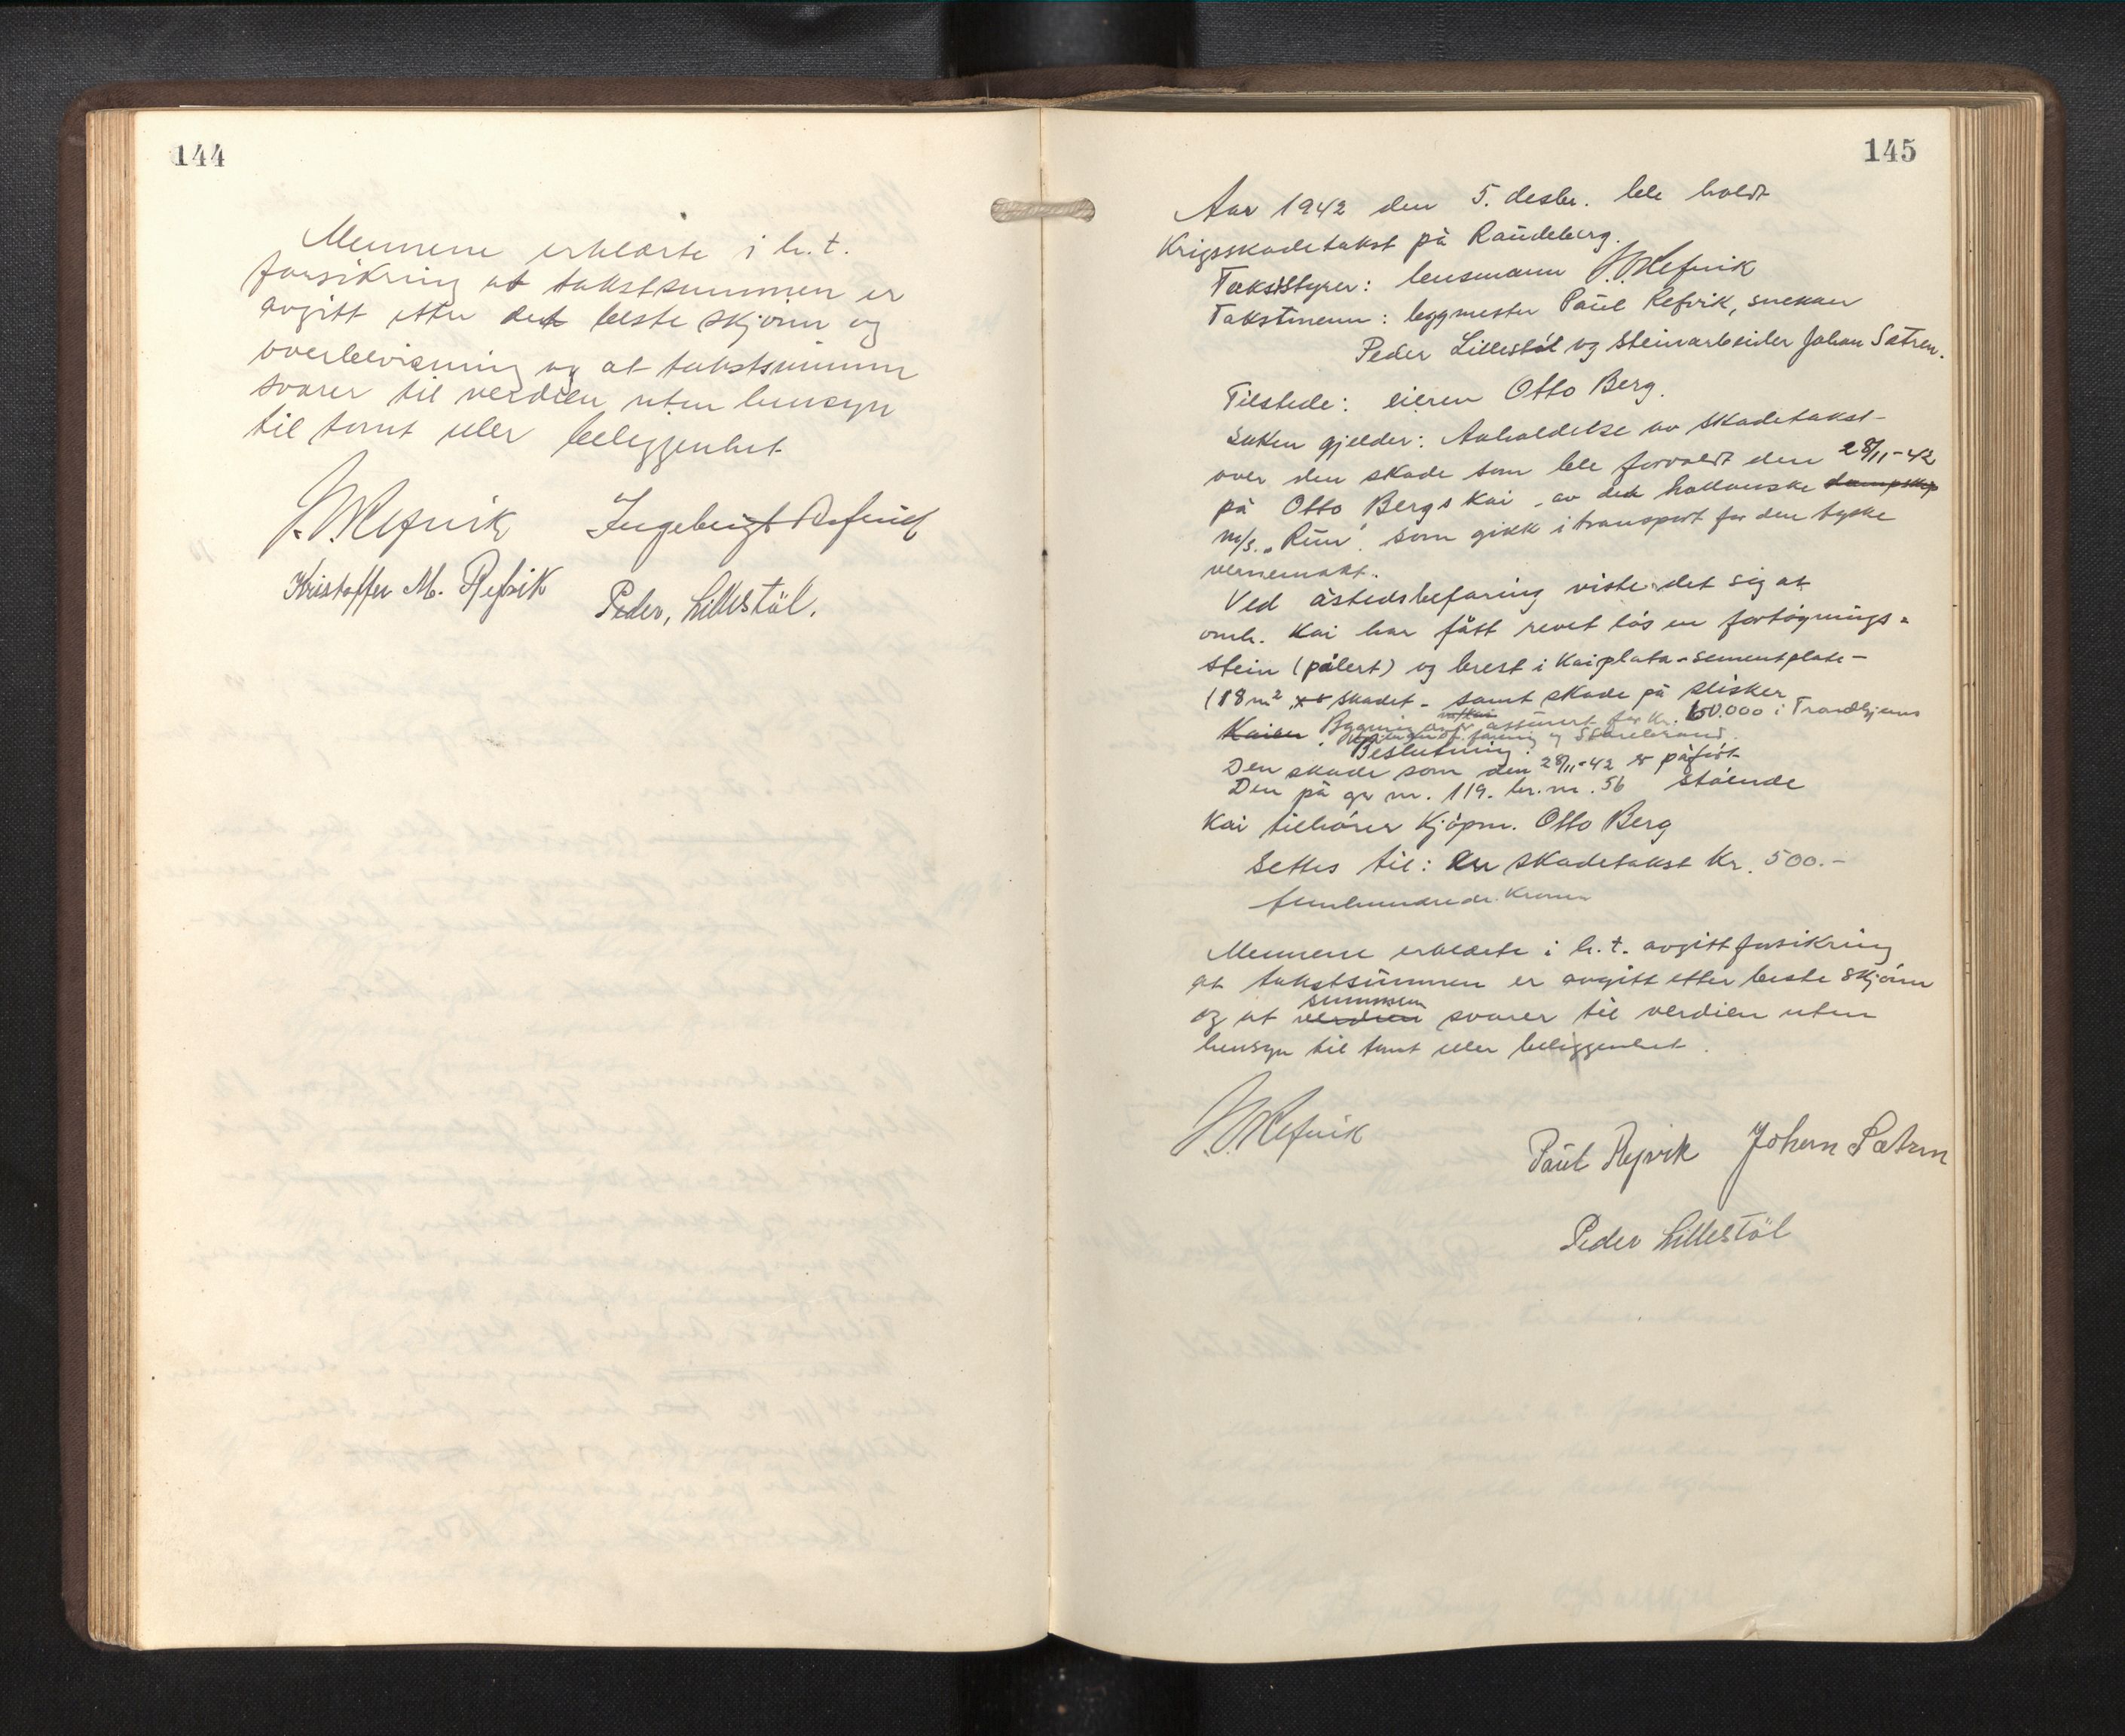 144
Mennene erklærte i h.t.
forsikring at takstsummen er
avgitt etter det beste skjönn og
overbevisning og at takstsummen
svarer til verdien uten hensyn
til tomt eller beliggenhet
Refvik Ingebrigt Refvik
Kristoffer M. Refvik Peder, Lillestöl.
145
Aar 1942 den 5. desbr. ble holdt
Krigsskadetakst på Raudeberg.
Takststyrer: lensmann Refvik
Takstmenn: byggmester Paul Refvik, snekker
Peder Lillestöl og steinarbeider Johan Sætren.
Tilstede: eieren Otto Berg.
Saken gjelder: Avholdelse av skadetakst
over den skade som ble forvoldt den 28/11-42
på Otto Bergs kai, av det hollanske dampskip
m/s. som gikk i transport for den tyske
vernemakt.
Ved åstedsbefaring viste det sig at
omh. kai har fått revet lös en fortöynings-
stein (pålert) og brest i kaiplata - sementplate -
(18 m² skadet - samt skade på slisker
Kaien Bygning assurert for Kr. 60.000 i Trondhjems
og Storebrand.
Beslutning:
Den skade som den 28/11-42 er påfört
Den på gr nr. 119. br.nr. 56 stående
kai tilhörer Kjöpm. Otto Berg
settes til: en skadetakst Kr. 500.-
femhundrede kroner
Mennene erklærte i h.t. avgitt forsikring
at takstsummen er avgitt etter beste skjönn
summen
og at verdien svarer til verdien uten
hensyn til tomt eller beliggenhet.
Refvik
Paul Refvik Johan Sætren
Peder Lillestöl